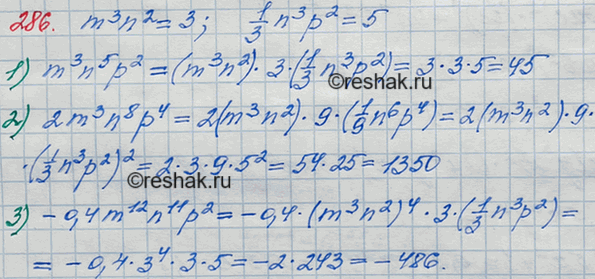 286. m³n² = 3; 1/3 n³p² = 5
1) m³n⁵p² = (m³n²) · 3 · (1/3 n³p²) = 3 · 3 · 5 = 45
©reshak.ru
2) 2m³n⁸p⁴ = 2(m³n²) · 9 · (1/9 n⁶p⁴) = 2(m³n²) · 9 ·
· (1/3 n³p²)² = 2 · 3 · 9 · 5² = 54 · 25 = 1350
©reshak.ru
3) -0,4m¹²n¹¹p² = -0,4 · (m³n²)⁴ · 3 · (1/3 n³p²) =
= -0,4 · 3⁴ · 3 · 5 = -2 · 243 = -486.